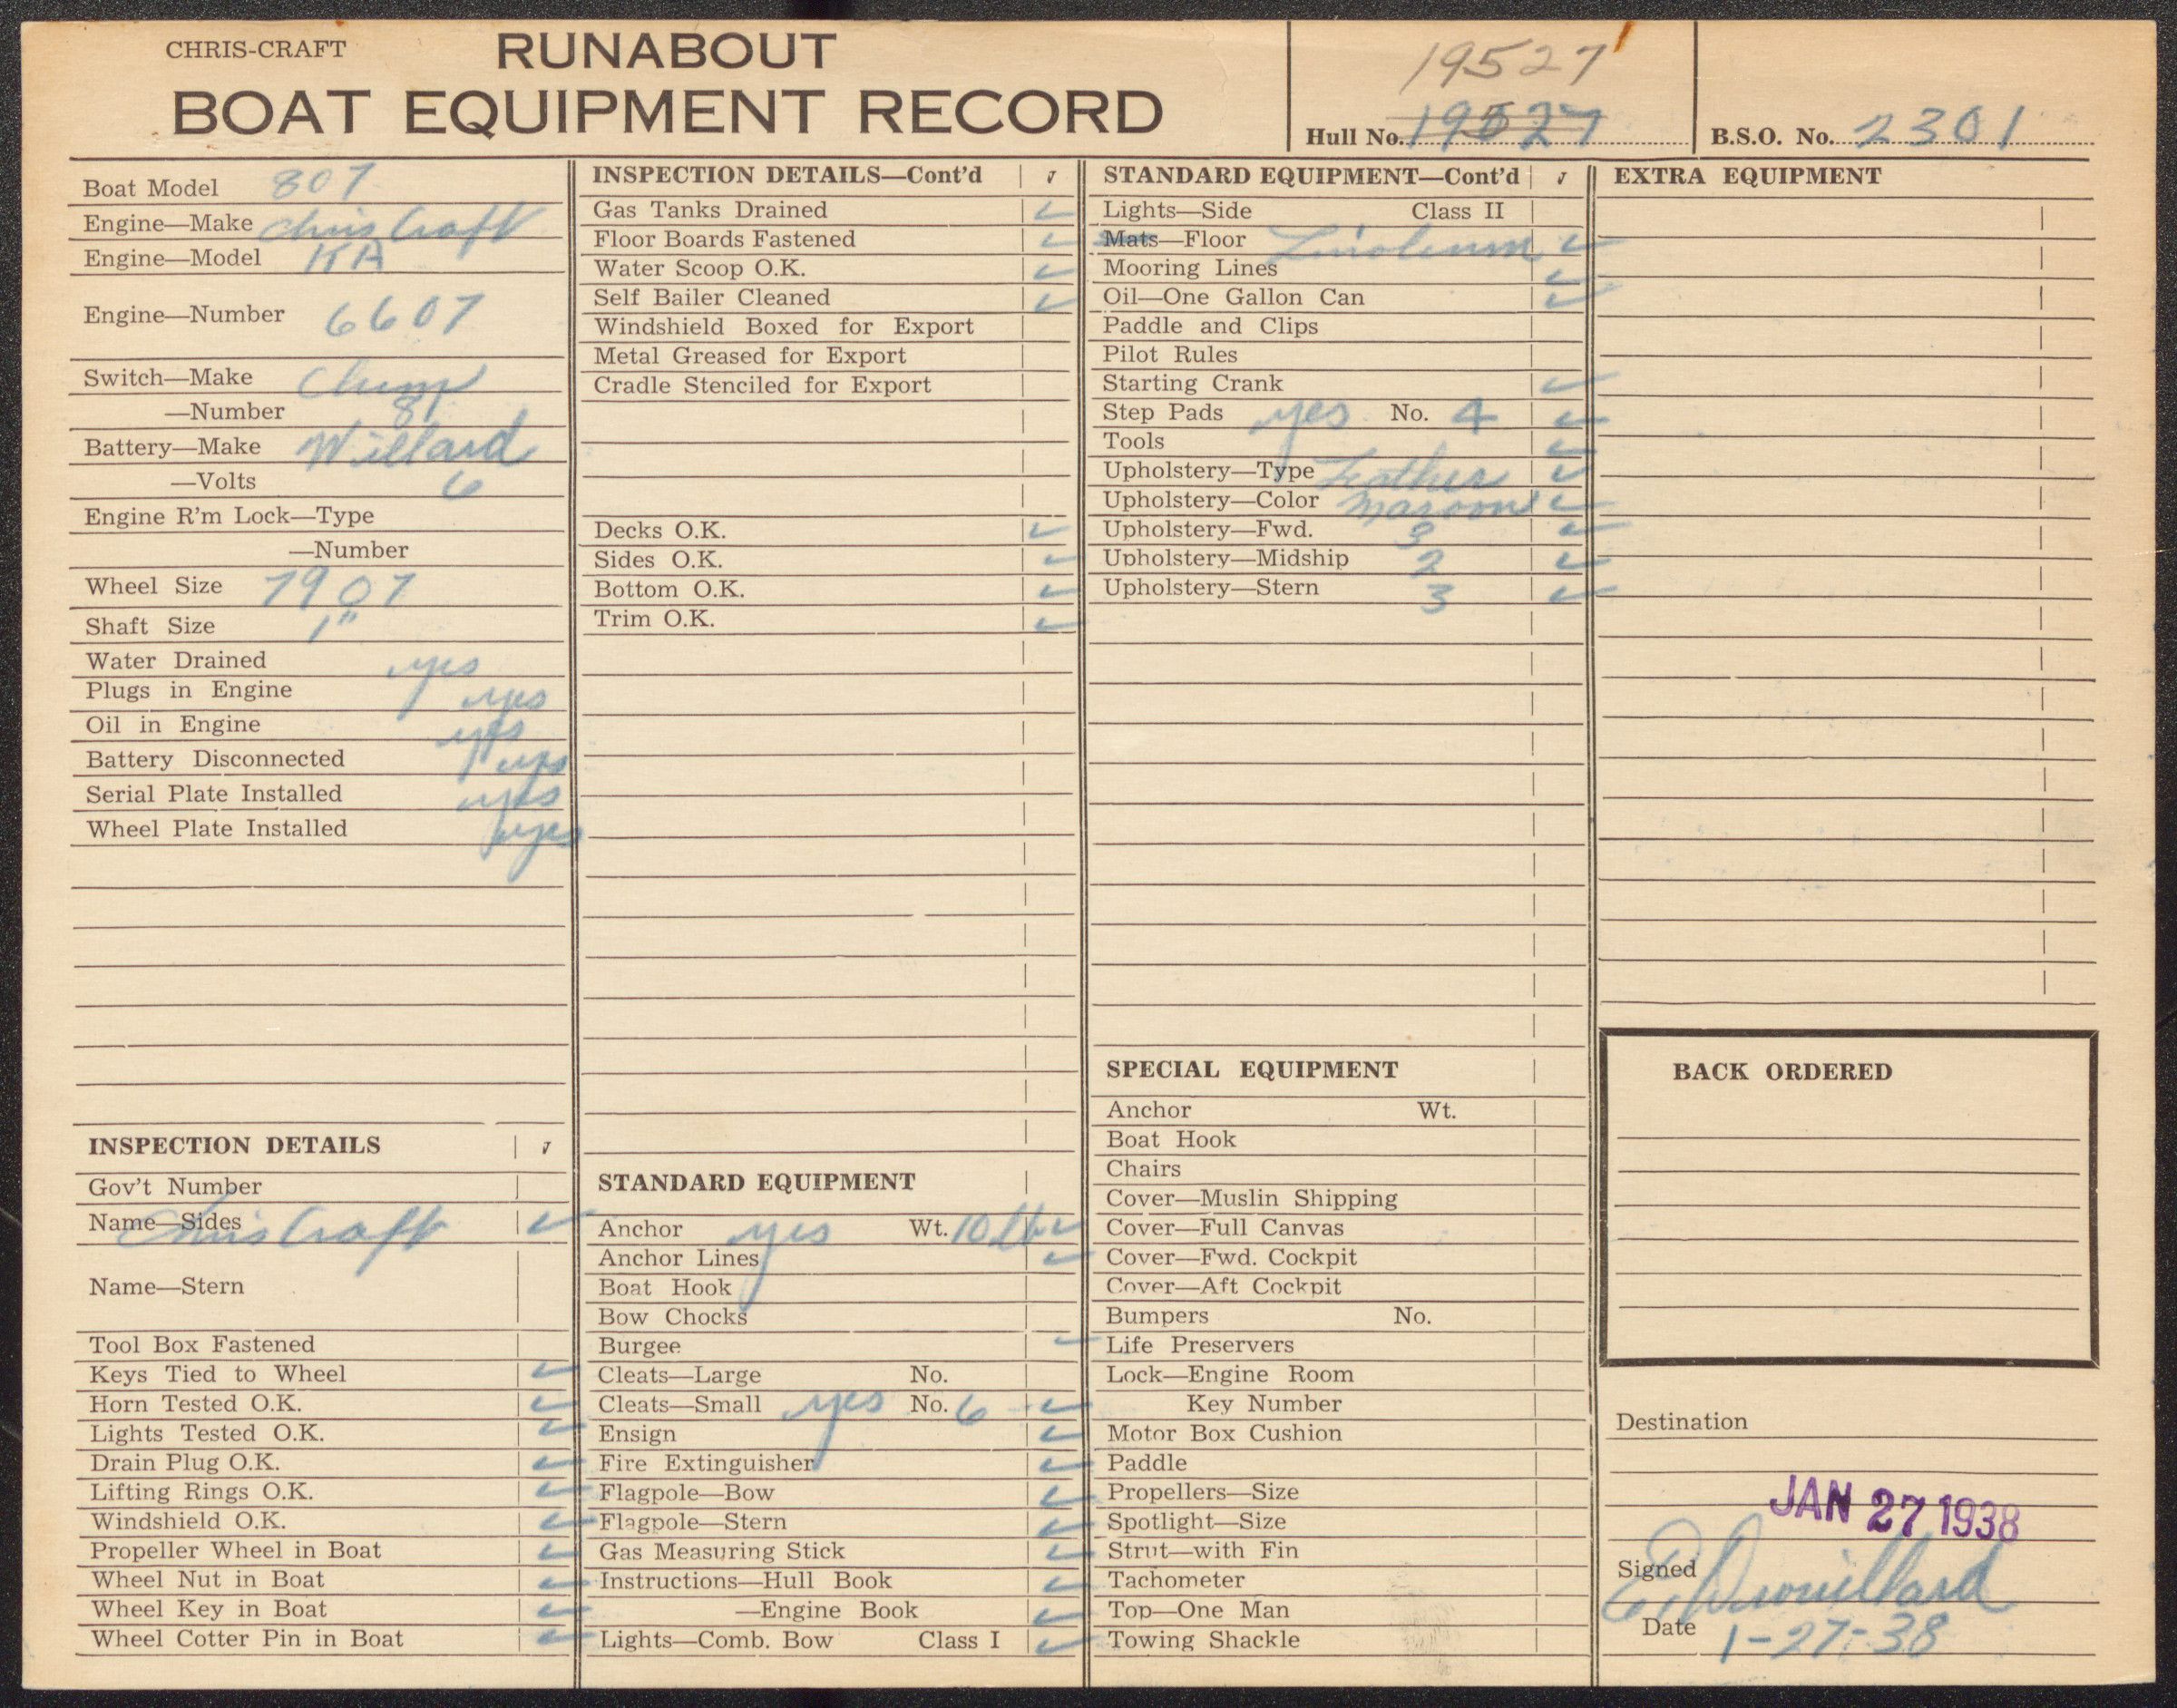 CHRIS-CRAFT RUNABOUT
BOAT EQUIPMENT RECORD
19527
Hull No. 19527
B.S.O. No. 2301
Boat Model 807
Engine—Make Chris Craft
Engine—Model KA
Engine—Number 6607
Switch—Make
—Number 87
Battery—Make Willard
—Volts 6
Engine R'm Lock—Type
—Number
Wheel Size 7907
Shaft Size 1"
Water Drained yes
Plugs in Engine yes
Oil in Engine yes
Battery Disconnected yes
Serial Plate Installed yes
Wheel Plate Installed yes
INSPECTION DETAILS ✓
Gov't Number
Name—Sides Chris Craft ✓
Name—Stern
Tool Box Fastened
Keys Tied to Wheel ✓
Horn Tested O.K. ✓
Lights Tested O.K. ✓
Drain Plug O.K. ✓
Lifting Rings O.K. ✓
Windshield O.K. ✓
Propeller Wheel in Boat ✓
Wheel Nut in Boat ✓
Wheel Key in Boat ✓
Wheel Cotter Pin in Boat ✓
INSPECTION DETAILS—Cont'd ✓
Gas Tanks Drained ✓
Floor Boards Fastened ✓
Water Scoop O.K. ✓
Self Bailer Cleaned ✓
Windshield Boxed for Export
Metal Greased for Export
Cradle Stenciled for Export
Decks O.K. ✓
Sides O.K. ✓
Bottom O.K. ✓
Trim O.K. ✓
STANDARD EQUIPMENT
Anchor yes Wt. 10 lb ✓
Anchor Lines ✓
Boat Hook
Bow Chocks
Burgee ✓
Cleats—Large No.
Cleats—Small yes No. 6 ✓
Ensign ✓
Fire Extinguisher ✓
Flagpole—Bow ✓
Flagpole—Stern ✓
Gas Measuring Stick ✓
Instructions—Hull Book ✓
—Engine Book ✓
Lights—Comb. Bow Class I ✓
STANDARD EQUIPMENT—Cont'd ✓
Lights—Side Class II
Mats—Floor Linoleum ✓
Mooring Lines ✓
Oil—One Gallon Can ✓
Paddle and Clips
Pilot Rules
Starting Crank ✓
Step Pads yes No. 4 ✓
Tools ✓
Upholstery—Type Leather ✓
Upholstery—Color Maroon ✓
Upholstery—Fwd. 3 ✓
Upholstery—Midship 2 ✓
Upholstery—Stern 3 ✓
SPECIAL EQUIPMENT
Anchor Wt.
Boat Hook
Chairs
Cover—Muslin Shipping
Cover—Full Canvas
Cover—Fwd. Cockpit
Cover—Aft Cockpit
Bumpers No.
Life Preservers
Lock—Engine Room
Key Number
Motor Box Cushion
Paddle
Propellers—Size
Spotlight—Size
Strut—with Fin
Tachometer
Top—One Man
Towing Shackle
EXTRA EQUIPMENT
BACK ORDERED
Destination
JAN 27 1938
Signed E. Drouillard
Date 1-27-38